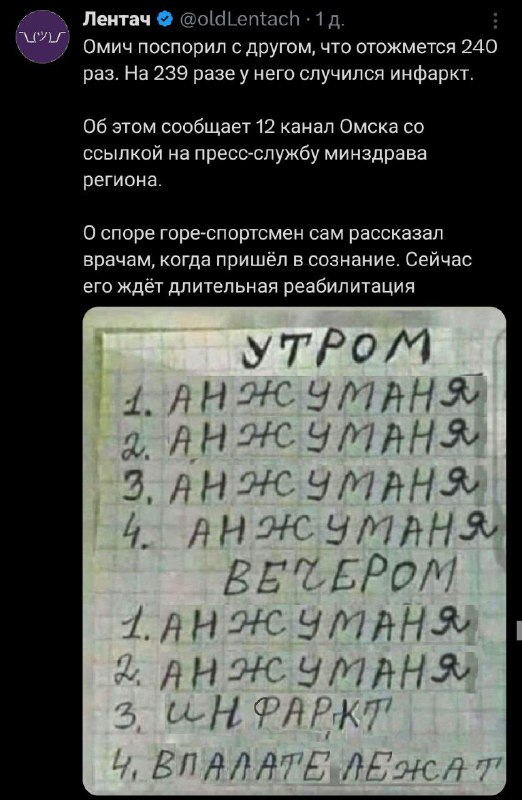 Лентач @oldLentach · 1 д.
Омич поспорил с другом, что отожмется 240
раз. На 239 разе у него случился инфаркт.
Об этом сообщает 12 канал Омска со
ссылкой на пресс-службу минздрава
региона.
О споре горе-спортсмен сам рассказал
врачам, когда пришёл в сознание. Сейчас
его ждёт длительная реабилитация
УТРОМ
1. АНЖУМАНЯ
2. АНЖУМАНЯ
3. АНЖУМАНЯ
4. АНЖУМАНЯ
ВЕЧЕРОМ
1. АНЖУМАНЯ
2. АНЖУМАНЯ
3. ИНФАРКТ
4. ВПАЛАТЕ ЛЕЖАТ